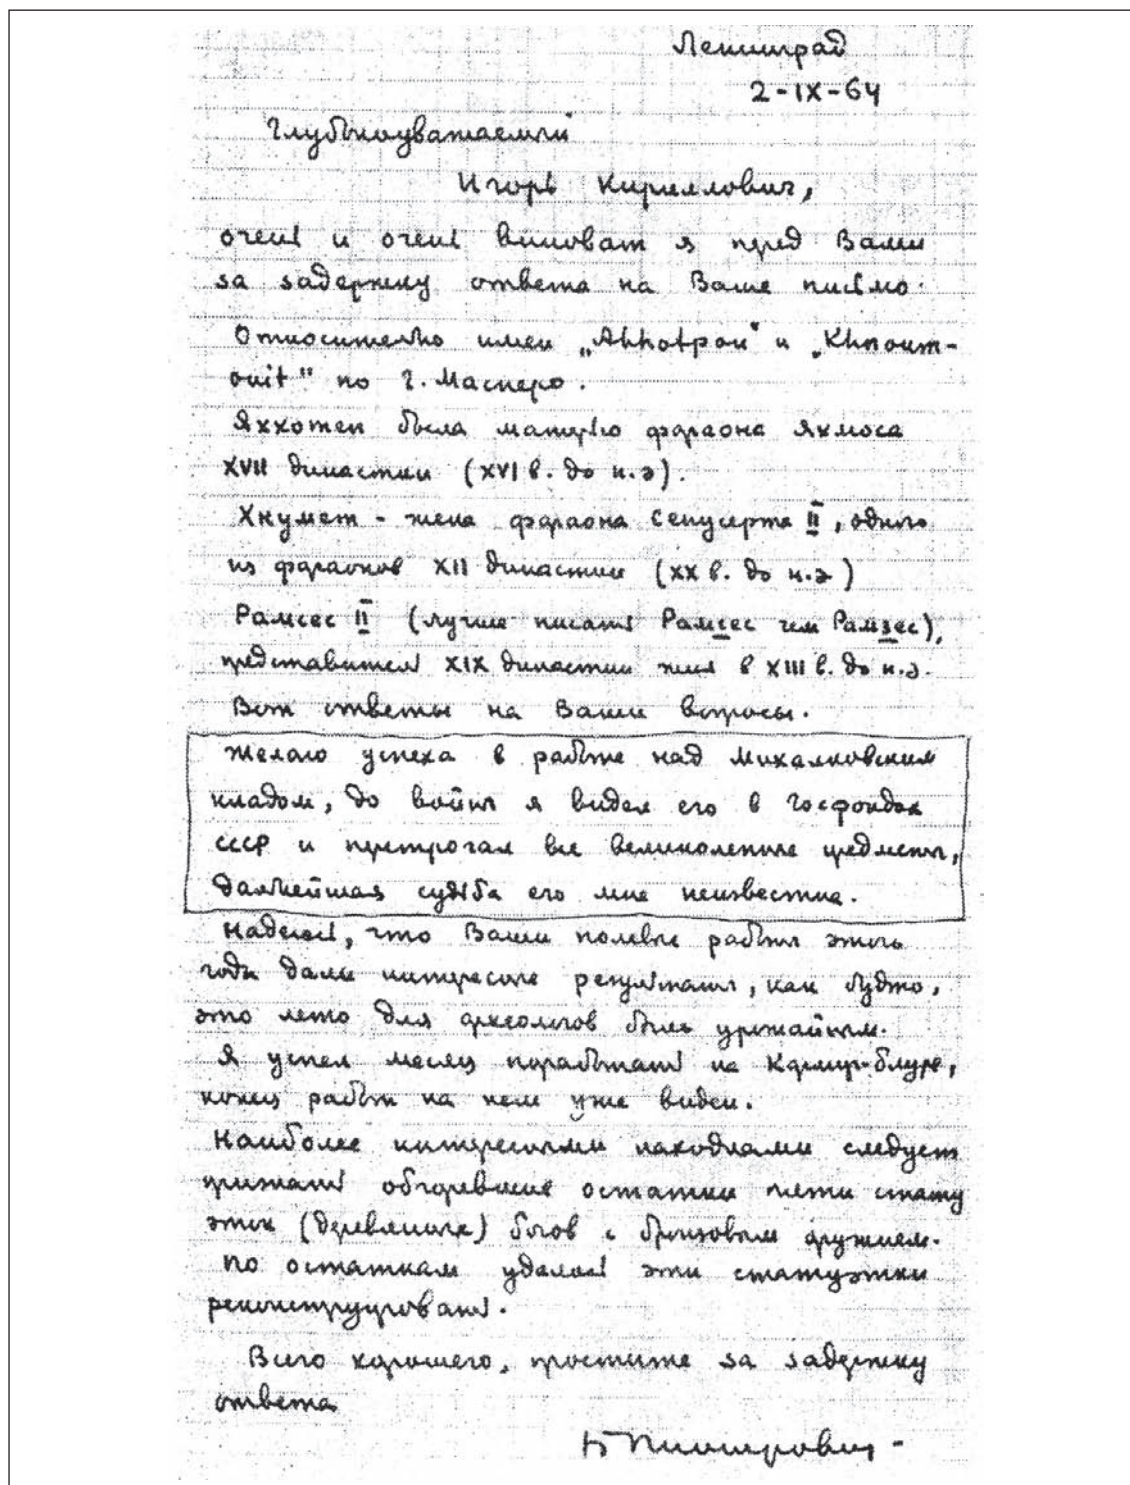 Ленинград
2-IX-64
Глубокоуважаемый
Игорь Кириллович,
очень и очень виноват я перед Вами
за задержку ответа на Ваше письмо.
Относительно имен „Ahhotpou“ и „Khnoum-
ouit" по Г. Масперо.
Яххотеп была матерью фараона Яхмоса
XVII династии (XVI в. до н.э).
Хнумет - жена фараона Сенусерта II, одного
из фараонов XII династии (XX в. до н.э)
Рамсес II (лучше писать Рамсес чем Рамзес),
представитель XIX династии жил в XIII в. до н.э.
Вот ответы на Ваши вопросы.
Желаю успеха в работе над Михалковским
кладом, до войны я видел его в Госфондах
СССР и перетрогал все великолепные предметы,
дальнейшая судьба его мне неизвестна.
Надеюсь, что Ваши полевые работы этого
года дали интересные результаты, как будто,
это лето для археологов было урожайным.
Я успел месяц поработать на Кармир-блуре,
конец работ на нем уже виден.
Наиболее интересными находками следует
признать обгоревшие остатки пяти стату
эток (деревянных) богов с бронзовым оружием.
По остаткам удалось эти статуэтки
реконструировать.
Всего хорошего, простите за задержку
ответа
Б Пиотровский